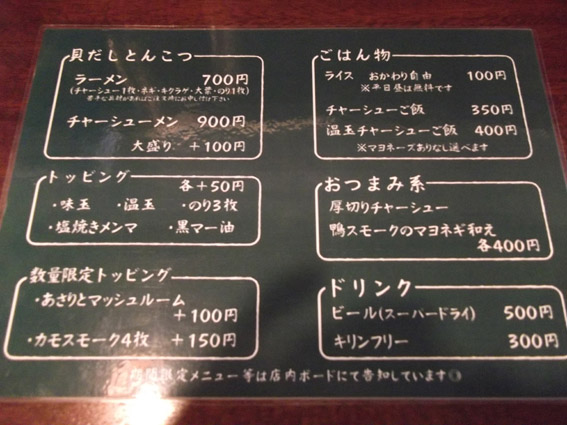 貝だしとんこつ
ラーメン 700円
(チャーシュー1枚・ネギ・キクラゲ・大葉・のり1枚)
苦手な具材があればご注文時にお申し付け下さい
チャーシューメン 900円
大盛り +100円
トッピング
各+50円
・味玉 ・温玉 ・のり3枚
・塩焼きメンマ ・黒マー油
数量限定トッピング
・あさりとマッシュルーム
+100円
・カモスモーク4枚 +150円
ごはん物
ライス おかわり自由 100円
※平日昼は無料です
チャーシューご飯 350円
温玉チャーシューご飯 400円
※マヨネーズありなし選べます
おつまみ系
厚切りチャーシュー
鴨スモークのマヨネギ和え
各400円
ドリンク
ビール(スーパードライ) 500円
キリンフリー 300円
限定メニュー等は店内ボードにて告知しています